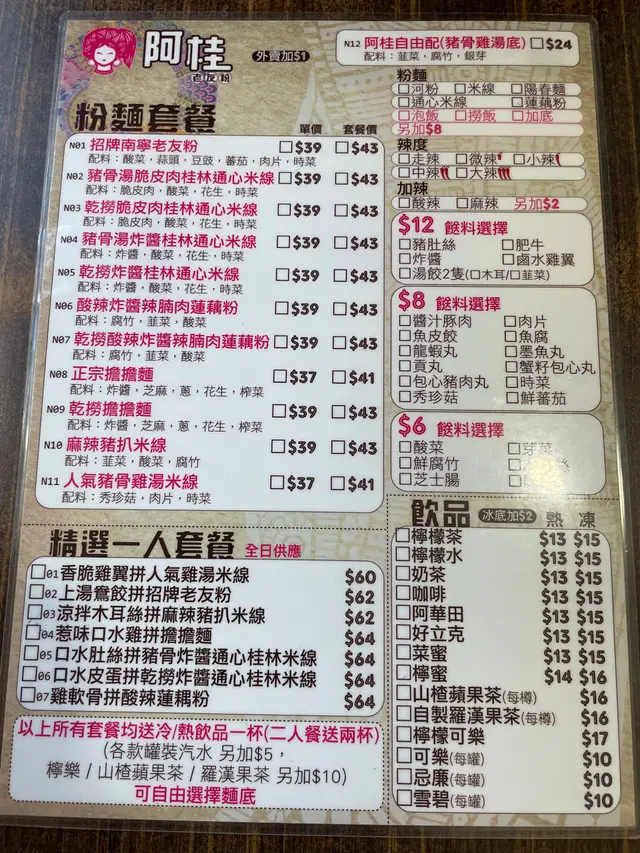 阿桂
老友粉
外賣加$1
粉麵套餐
單價 套餐價
N01 招牌南寧老友粉 $39 $43
配料：酸菜，蒜頭，豆豉，蕃茄，肉片，時菜
N02 豬骨湯脆皮肉桂林通心米線 $39 $43
配料：脆皮肉，酸菜，花生，時菜
N03 乾撈脆皮肉桂林通心米線 $39 $43
配料：脆皮肉，酸菜，花生，時菜
N04 豬骨湯炸醬桂林通心米線 $39 $43
配料：炸醬，酸菜，花生，時菜
N05 乾撈炸醬桂林通心米線 $39 $43
配料：炸醬，酸菜，花生，時菜
N06 酸辣炸醬辣腩肉蓮藕粉 $39 $43
配料：腐竹，韮菜，酸菜
N07 乾撈酸辣炸醬辣腩肉蓮藕粉 $39 $43
配料：腐竹，韮菜，酸菜
N08 正宗擔擔麵 $37 $41
配料：炸醬，芝麻，蔥，花生，榨菜
N09 乾撈擔擔麵 $39 $43
配料：炸醬，芝麻，蔥，花生，榨菜
N10 麻辣豬扒米線 $39 $43
配料：韮菜，酸菜，腐竹
N11 人氣豬骨雞湯米線 $37 $41
配料：秀珍菇，肉片，時菜
精選一人套餐 全日供應
01 香脆雞翼拼人氣雞湯米線 $60
02 上湯鴛餃拼招牌老友粉 $62
03 涼拌木耳絲拼麻辣豬扒米線 $62
04 惹味口水雞拼擔擔麵 $64
05 口水肚絲拼豬骨炸醬通心桂林米線 $64
06 口水皮蛋拼乾撈炸醬通心桂林米線 $64
07 雞軟骨拼酸辣蓮藕粉 $64
以上所有套餐均送冷/熱飲品一杯(二人餐送兩杯)
(各款罐裝汽水 另加$5，
檸樂 / 山楂蘋果茶 / 羅漢果茶 另加$10)
可自由選擇麵底
N12 阿桂自由配(豬骨雞湯底) $24
配料：韮菜，腐竹，銀芽
粉麵
河粉 米線 陽春麵
通心米線 蓮藕粉
泡飯 撈飯 加底
另加$8
辣度
走辣 微辣 小辣
中辣 大辣
加辣
酸辣 麻辣 另加$2
$12 餸料選擇
豬肚絲 肥牛
炸醬 鹵水雞翼
湯餃2隻(口木耳/口韮菜)
$8 餸料選擇
醬汁豚肉 肉片
魚皮餃 魚腐
龍蝦丸 墨魚丸
貢丸 蟹籽包心丸
包心豬肉丸 時菜
秀珍菇 鮮蕃茄
$6 餸料選擇
酸菜 芽菜
鮮腐竹 絲
芝士腸
飲品 冰底加$2 熱 凍
檸檬茶 $13 $15
檸檬水 $13 $15
奶茶 $13 $15
咖啡 $13 $15
阿華田 $13 $15
好立克 $13 $15
菜蜜 $13 $15
檸蜜 $14 $16
山楂蘋果茶(每樽) $16
自製羅漢果茶(每樽) $16
檸檬可樂 $17
可樂(每罐) $10
忌廉(每罐) $10
雪碧(每罐) $10